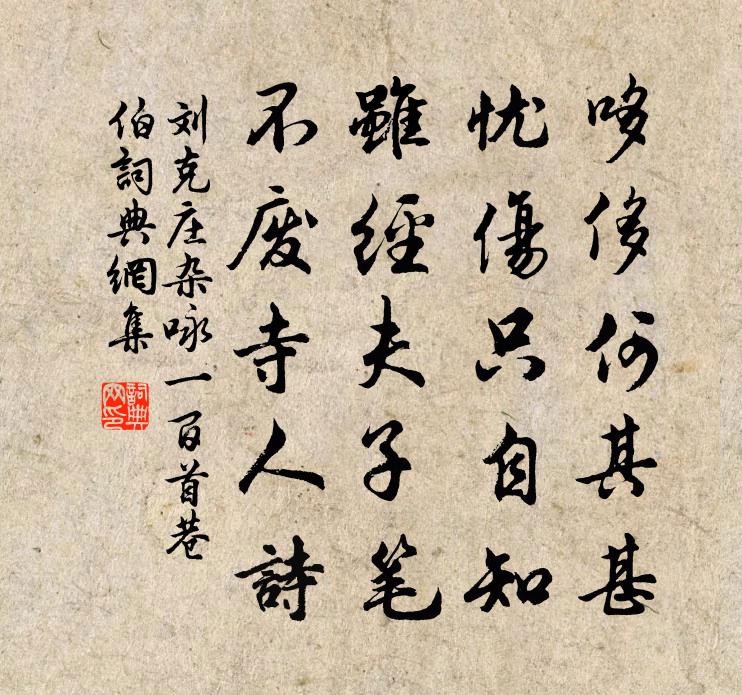 哆侈何其甚
忧傷只自知
雖經夫子笔
不废寺人詩
刘克庄杂咏一百首巷
伯詞典網集
詞典
网印